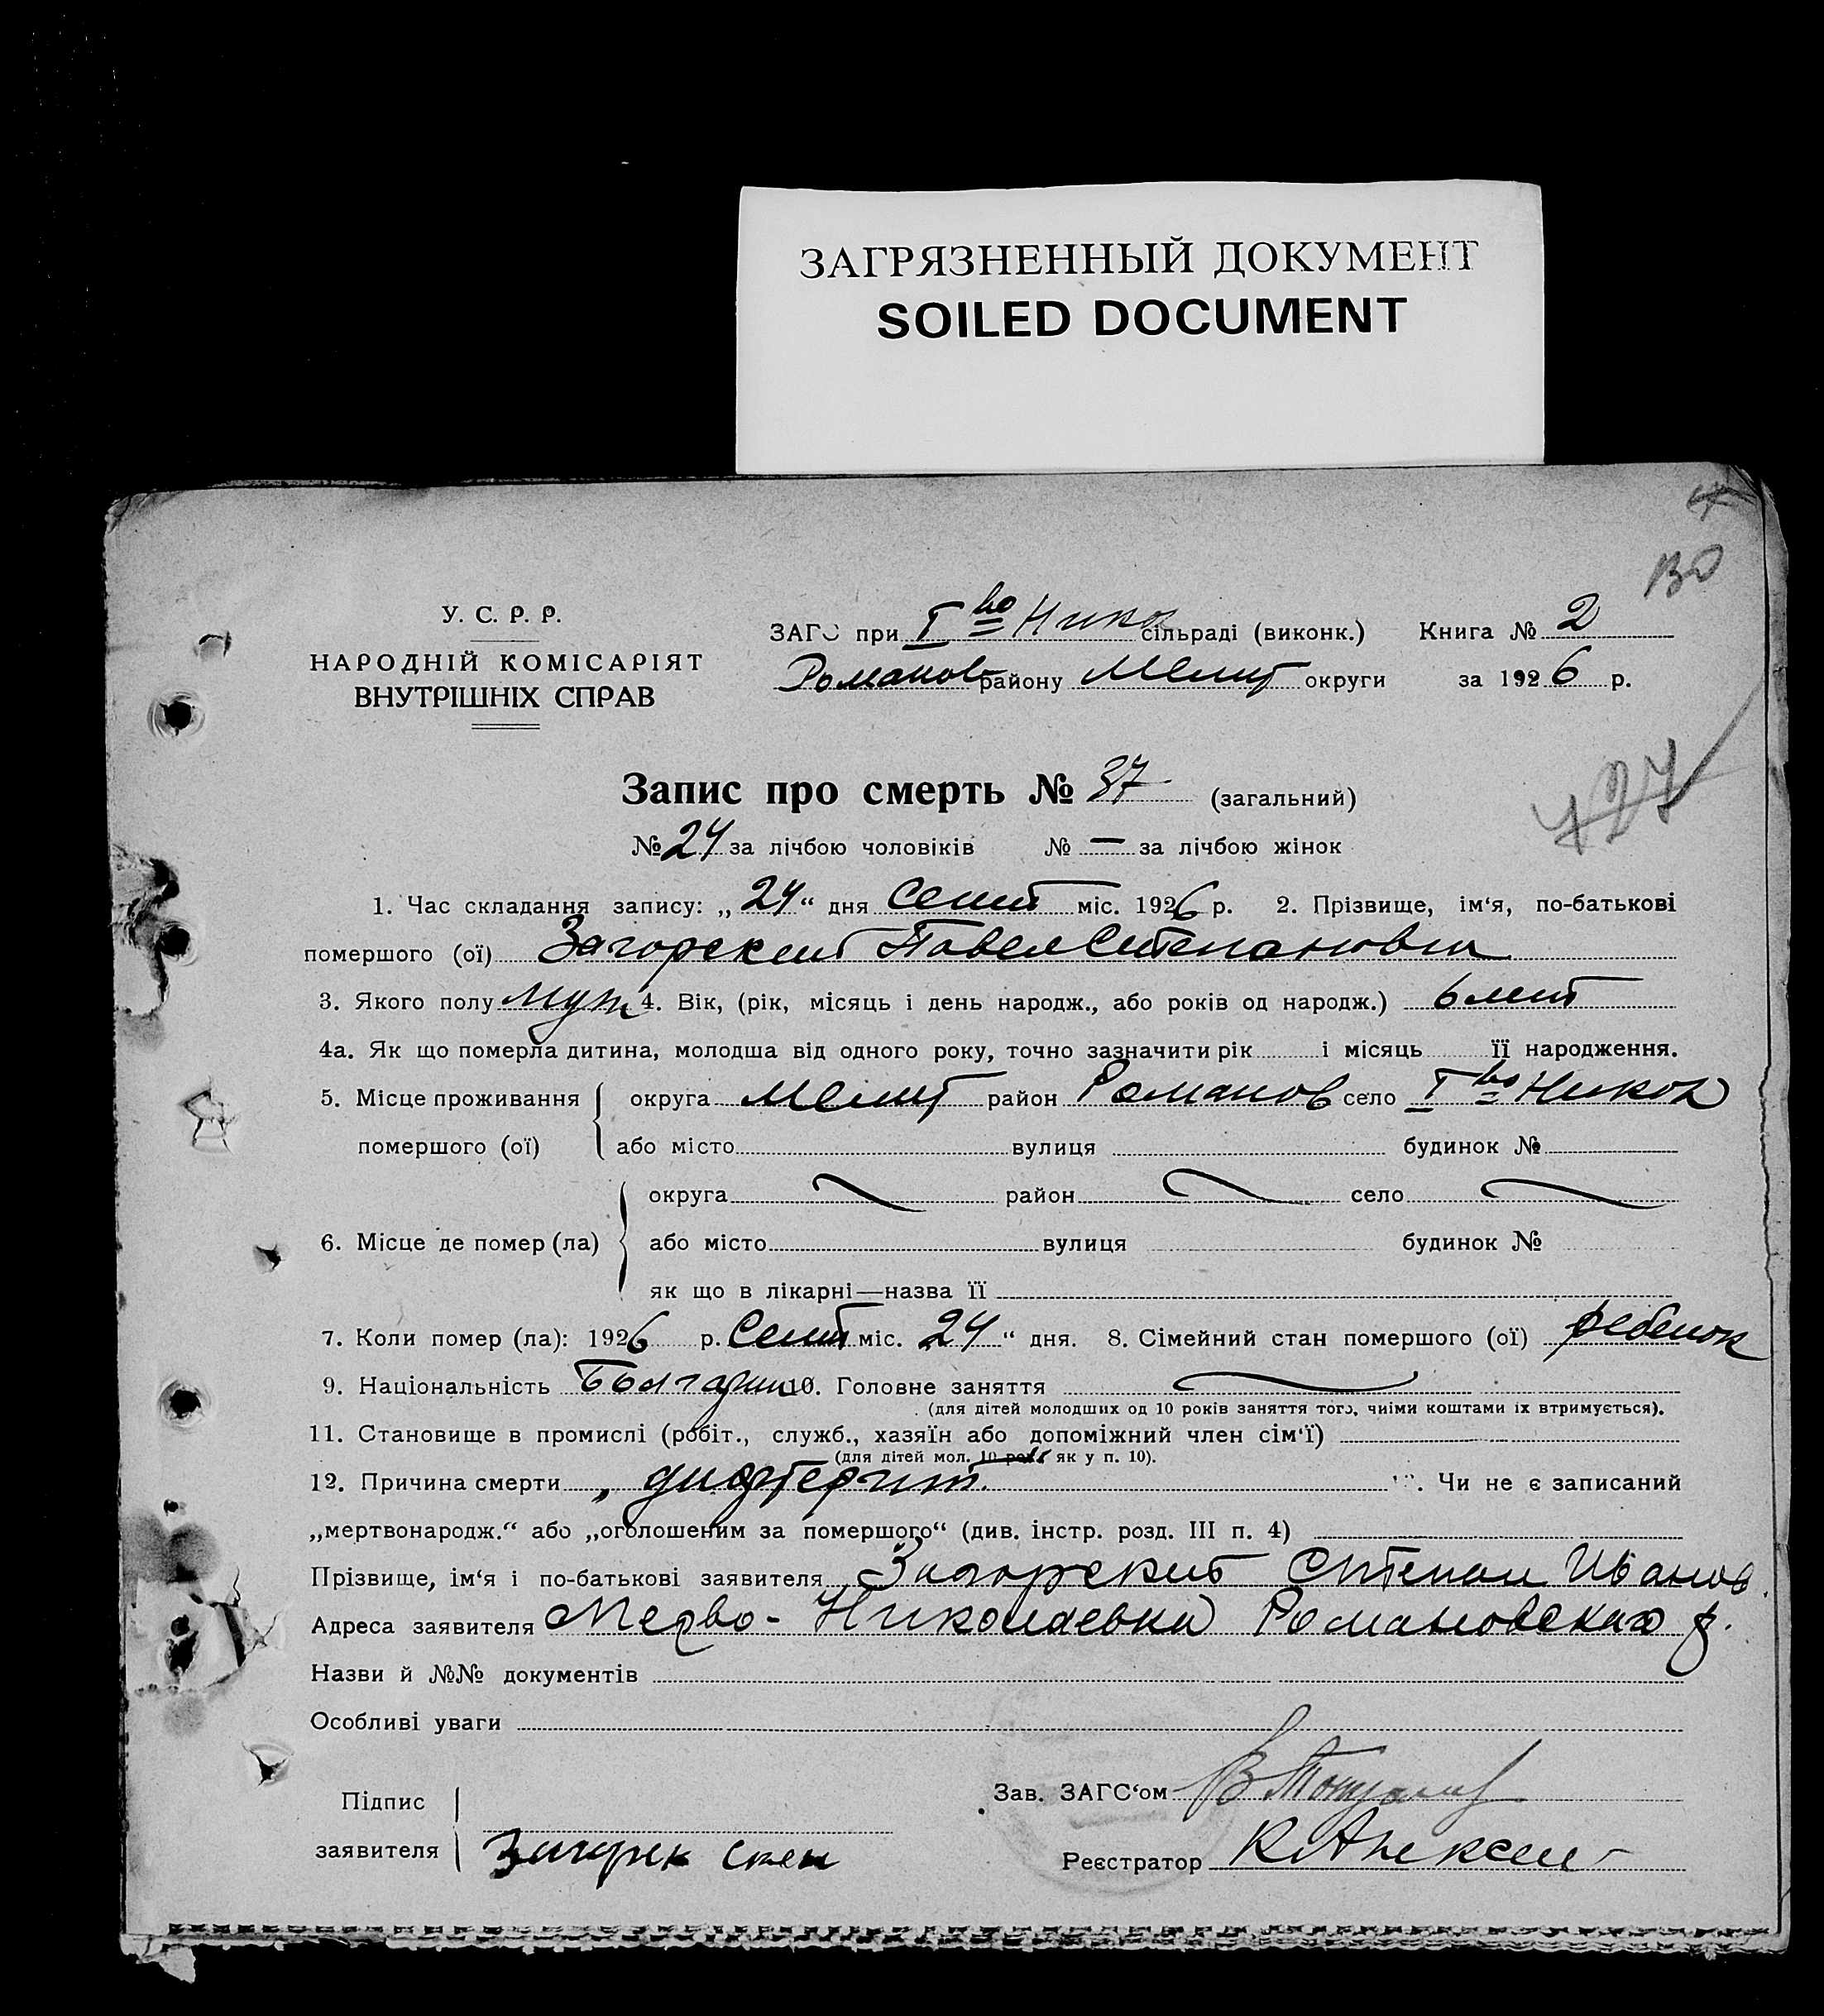 ЗАГРЯЗНЕННЫЙ ДОКУМЕНТ
SOILED DOCUMENT
У. С. Р. Р.
НАРОДНІЙ КОМІСАРІЯТ
ВНУТРІШНІХ СПРАВ
ЗАГС при I во Нико сільраді (виконк.) Книга № 2
Романов району Мелит округи за 1926 р.
Запис про смерть № 37 (загальний)
№ 24 за лічбою чоловіків № — за лічбою жінок
1. Час складання запису: „24“ дня Сент міс. 1926 р. 2. Прізвище, ім‘я, по-батькові
помершого (ої) Загорский Павел Степанович
3. Якого полу Муж 4. Вік, (рік, місяць і день народж., або років од народж.) 6 лет
4а. Як що померла дитина, молодша від одного року, точно зазначити рік і місяць її народження.
5. Місце проживання округа Мелит район Романов село I во Никол
помершого (ої) або місто вулиця будинок №
округа район село
6. Місце де помер (ла) або місто вулиця будинок №
як що в лікарні—назва її
7. Коли помер (ла): 1926 р. Сент міс. 24“ дня. 8. Сімейний стан помершого (ої) ребенок
9. Національність Болгарин 10. Головне заняття
(для дітей молодших од 10 років заняття того, чиїми коштами їх втримується).
11. Становище в промислі (робіт., служб., хазяїн або допоміжний член сім‘ї)
(для дітей мол. 10 років як у п. 10).
12. Причина смерти „дифтерит. “. Чи не є записаний
„мертвонародж.“ або „оголошеним за помершого“ (див. інстр. розд. III п. 4)
Прізвище, ім‘я і по-батькові заявителя Загорский Степан Иванов
Адреса заявителя Перво-Николаевка Романовская р.
Назви й №№ документів
Особливі уваги
Підпис
заявителя Загорск
Зав. ЗАГС‘ом
Реєстратор К Алексеи